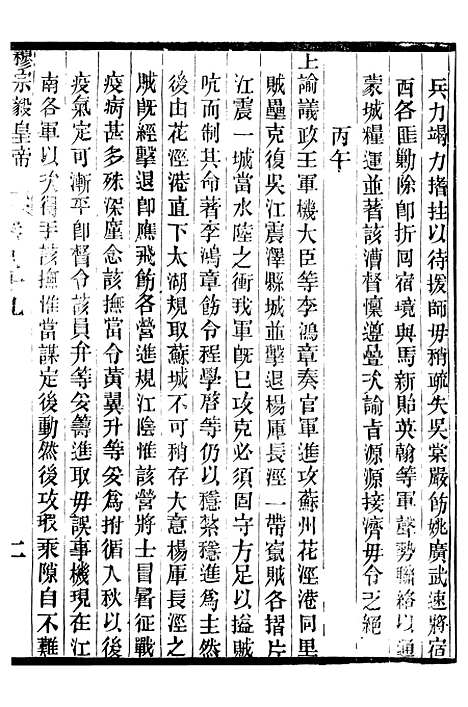 兵力竭力撐拄以待援師毋稍疏失吳棠嚴飭姚廣武速將宿
西各匪勦除卽折回宿境與馬新貽英翰等軍聲勢聯絡以通
蒙城糧運並著該漕督懍遵疊次諭旨源源接濟毋令乏絕
丙午
上諭議政王軍機大臣等李鴻章奏官軍進攻蘇州花涇港同里
賊壘克復吳江震澤縣城並擊退楊厙長涇一帶竄賊各摺片
江震一城當水陸之衝我軍旣已攻克必須固守以搤賊
吭而制其死命著李鴻章飭令程學啓等仍以穩紮穩進爲主然
後由花涇港直下太湖規取蘇城不可稍存大意楊厙長涇之
賊旣經擊退卽應飛飭各營進規江陰惟該營將士冒暑征戰
疫病甚多殊深廑念該撫當令黃翼升等妥爲拊循入秋以後
疫氣定可漸平卽督令該員弁等妥籌進取毋誤事機現在江
南各軍以次得手該撫惟當謀定後動然後攻瑕乘隙自不難
穆宗毅皇帝
二